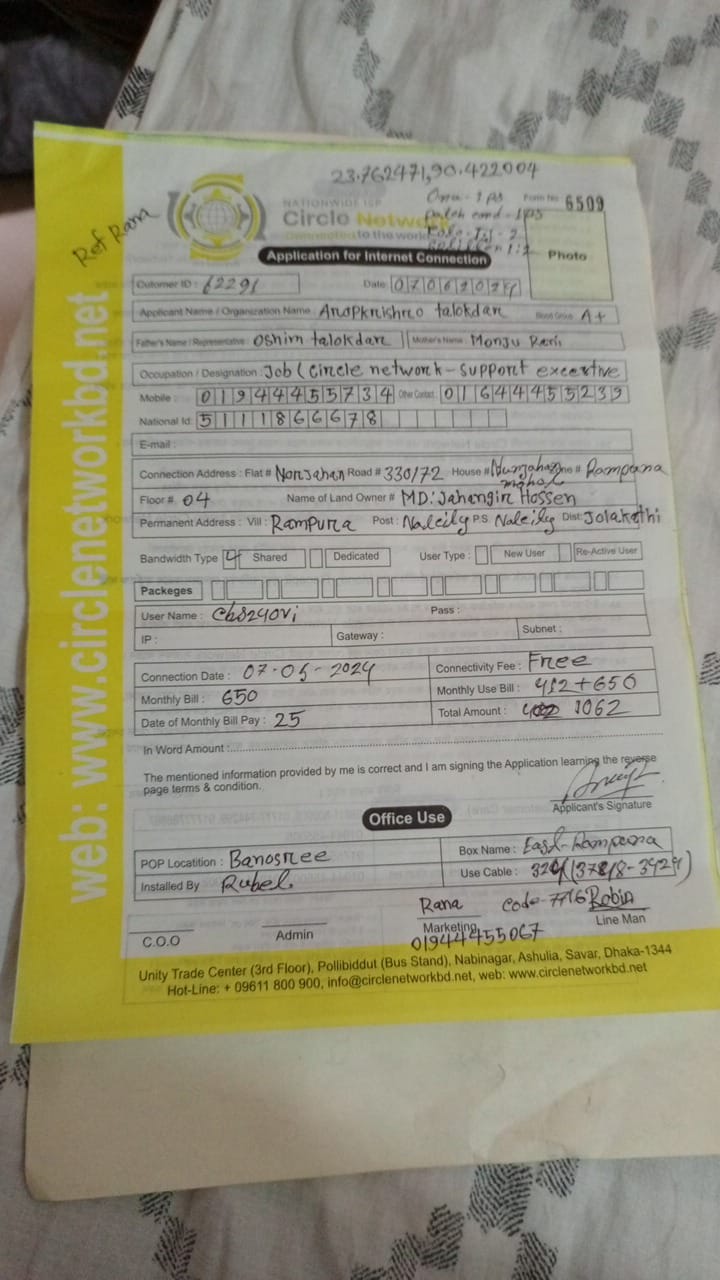 23.762471,90.422004
Ref Rana
NATIONWIDE ISP
Circle Network
Connected to the world
Onu - 1 ps
Patch cord - 1 ps
Form No: 6509
Photo
Application for Internet Connection
Cutomer ID : 62291 Date: 07062024
Applicant Name / Organization Name Anopkrishno talokdar Blood Group A+
Father's Name / Representative: Oshim talokdar Mother's Name Monju Rani
Occupation / Designation: Job (Circle network - support excective
Mobile : 01944455734 Other Contact: 01644455239
National Id: 5111866678
E-mail :
Connection Address : Flat # Norjahan Road # 330/72 House # Nurjahan mohol # Rampura
Floor #. 04 Name of Land Owner # MD: Jahangir Hossen
Permanent Address : Vill : Rampura Post : Nalcily P.S Nalcily Dist: Jolakathi
Bandwidth Type Shared Dedicated User Type : New User Re-Active User
Packeges
User Name : Pass :
IP : Gateway : Subnet :
Connection Date : 07-05-2024 Connectivity Fee : Free
Monthly Bill : 650 Monthly Use Bill : 412+650
Date of Monthly Bill Pay : 25 Total Amount : 1062
In Word Amount :
The mentioned information provided by me is correct and I am signing the Application learning the reverse
page terms & condition.
Applicant's Signature
Office Use
POP Locatition : Banosree Box Name : East-Rampura
Installed By Rubel Use Cable :
Rana Code-7716 Robin
C.O.O Admin Marketing Line Man
01944455067
Unity Trade Center (3rd Floor), Pollibiddut (Bus Stand), Nabinagar, Ashulia, Savar, Dhaka-1344
Hot-Line: + 09611 800 900, info@circlenetworkbd.net, web: www.circlenetworkbd.net
web: www.circlenetworkbd.net